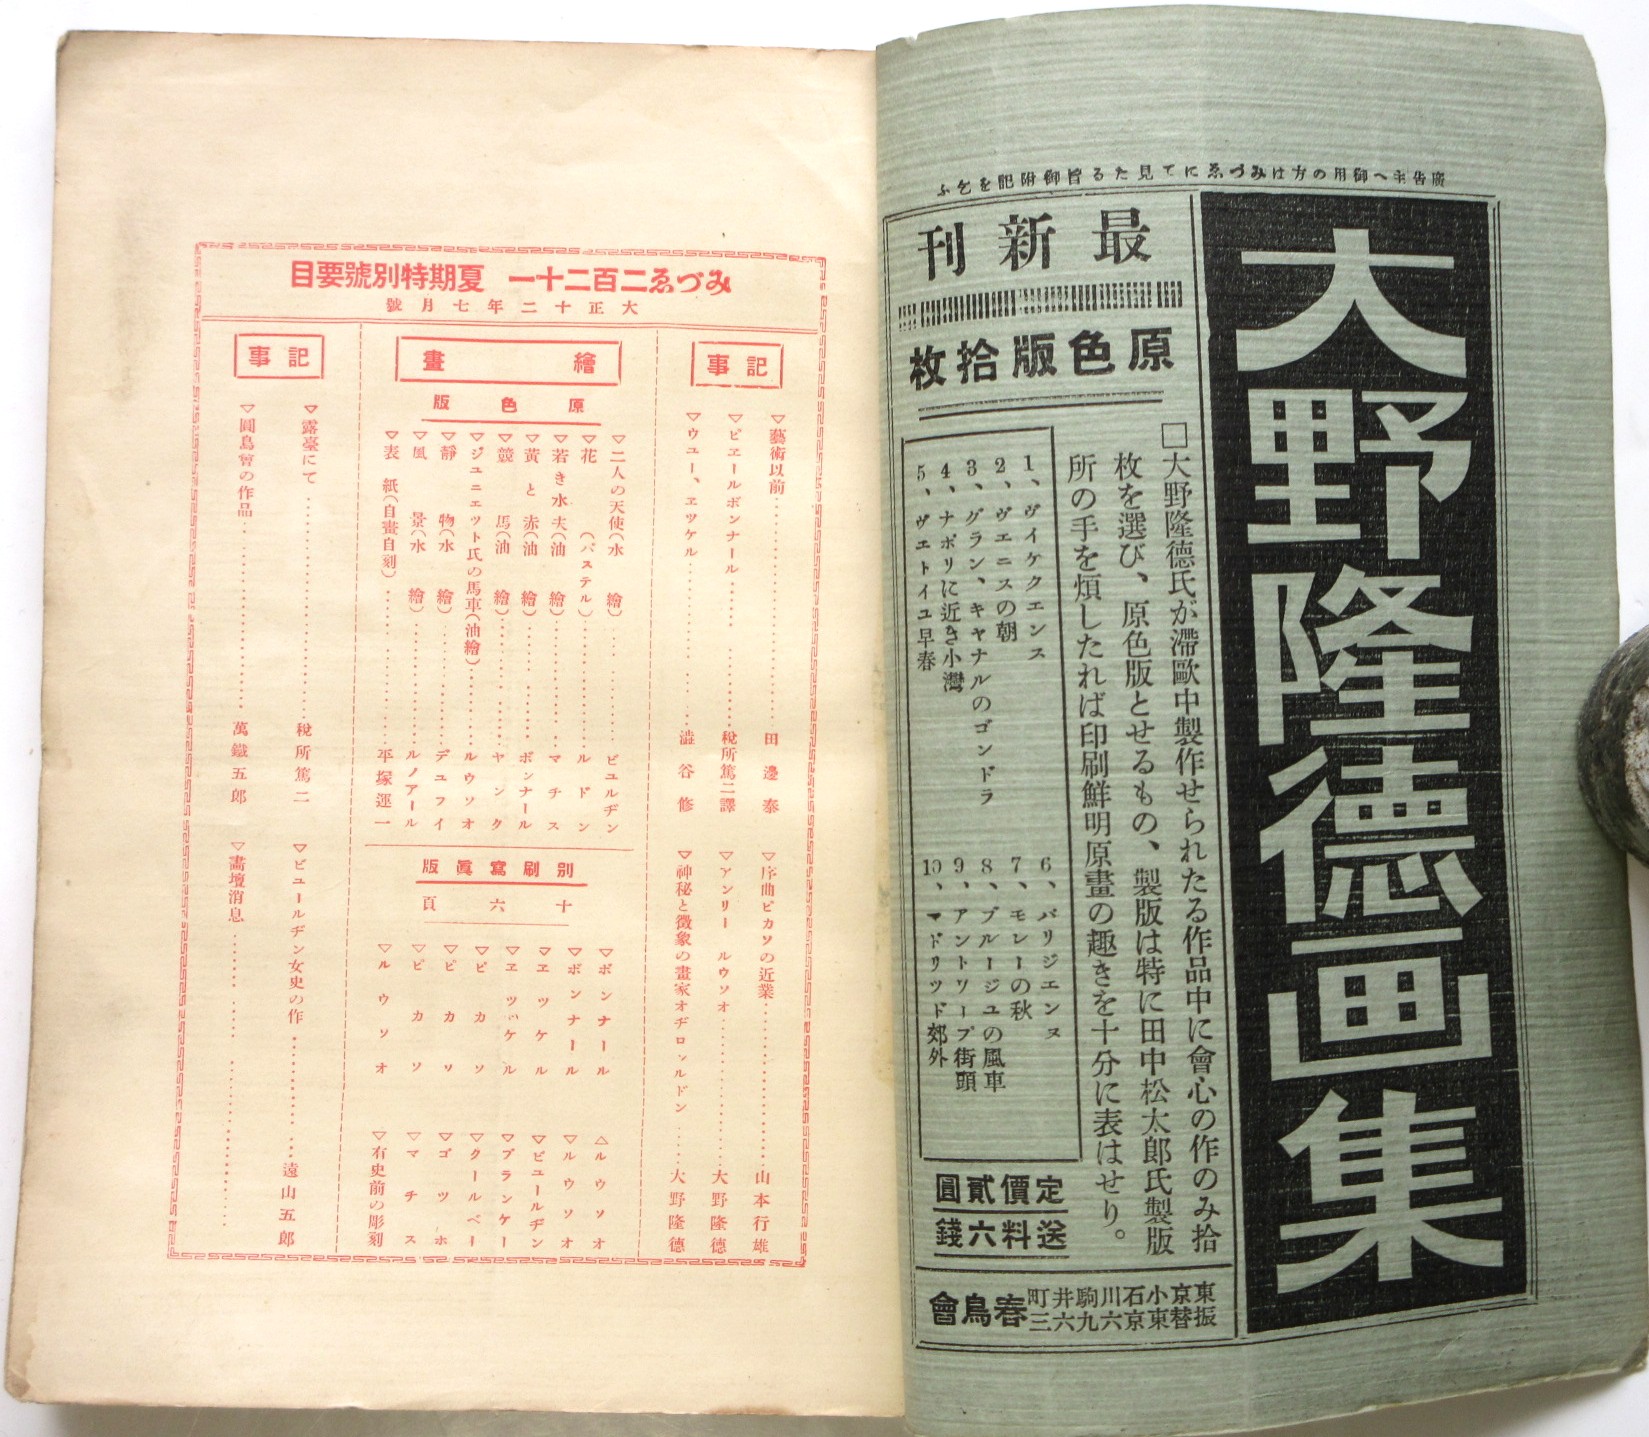 廣告主へ御用の方はみづゑにて見たる旨御附記を乞ふ
大野隆德画集
最新刊
原色版拾枚
□大野隆德氏が滯歐中製作せられたる作品中に會心の作のみ拾
枚を選び、原色版とせるもの、製版は特に田中松太郎氏製版
所の手を煩したれば印刷鮮明原畫の趣きを十分に表はせり。
1、ヴイケクエンス
2、ヴェニスの朝
3、グラン、キャナルのゴンドラ
4、ナポリに近き小灣
5、ヴェトイユ早春
6、パリジエンヌ
7、モレーの秋
8、ブルージユの風車
9、アントワープ街頭
10、マドリッド郊外
定價貳圓
送料六錢
東京小石川駒井町
振替東京六九六三
春鳥會
みづゑ二百二十一 夏期特別號要目
大正十二年七月號
記事
▽藝術以前 田邊泰
▽ピエールボンナール 稅所篤二譯
▽ウユー、エッケル 澁谷修
▽序曲ピカソの近業 山本行雄
▽アンリー ルウソオ 大野隆德
▽神秘と徵象の畫家オヂロッルドン 大野隆德
繪畫
原色版
▽二人の天使(水繪) ビユルヂン
▽花(パステル) ルドン
▽若き水夫(油繪) マチス
▽黃と赤(油繪) ボンナール
▽競馬(油繪) ヤンク
▽ジュニエット氏の馬車(油繪) ルウソオ
▽靜物(水繪) デュフイ
▽風景(水繪) ルノアール
▽表紙(自畫自刻) 平塚運一
別刷寫眞版
十六頁
▽ボンナール
▽ボンナール
▽エッケル
▽エッケル
▽ピカソ
▽ピカソ
▽ピカソ
▽ルウソオ
△ルウソオ
▽ルウソオ
▽ビュールヂン
▽ブランケー
▽クールベー
▽ゴツホ
▽マチス
▽有史前の彫刻
記事
▽露臺にて 稅所篤二
▽圓鳥會の作品 萬鐵五郎
▽ビュールヂン女史の作 遠山五郎
▽畵壇消息